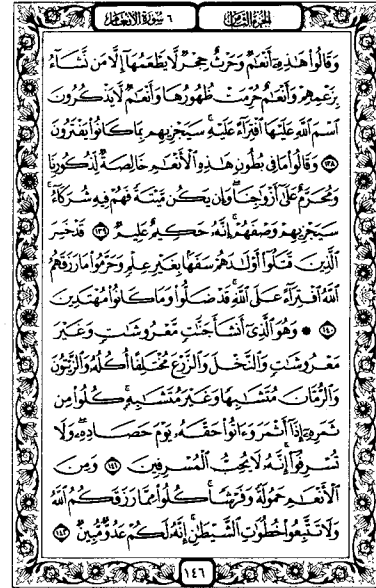 الجزء الثامن
٦ سورة الأنعام
وَقَالُوا۟ هَـٰذِهِۦٓ أَنْعَـٰمٌ وَحَرْثٌ حِجْرٌ لَّا يَطْعَمُهَآ إِلَّا مَن نَّشَآءُ
بِزَعْمِهِمْ وَأَنْعَـٰمٌ حُرِّمَتْ ظُهُورُهَا وَأَنْعَـٰمٌ لَّا يَذْكُرُونَ
ٱسْمَ ٱللَّهِ عَلَيْهَا ٱفْتِرَآءً عَلَيْهِ ۚ سَيَجْزِيهِم بِمَا كَانُوا۟ يَفْتَرُونَ
١٣٨ وَقَالُوا۟ مَا فِى بُطُونِ هَـٰذِهِ ٱلْأَنْعَـٰمِ خَالِصَةٌ لِّذُكُورِنَا
وَمُحَرَّمٌ عَلَىٰٓ أَزْوَٰجِنَا ۖ وَإِن يَكُن مَّيْتَةً فَهُمْ فِيهِ شُرَكَآءُ ۚ
سَيَجْزِيهِمْ وَصْفَهُمْ ۚ إِنَّهُۥ حَكِيمٌ عَلِيمٌ ١٣٩ قَدْ خَسِرَ
ٱلَّذِينَ قَتَلُوٓا۟ أَوْلَـٰدَهُمْ سَفَهًۢا بِغَيْرِ عِلْمٍ وَحَرَّمُوا۟ مَا رَزَقَهُمُ
ٱللَّهُ ٱفْتِرَآءً عَلَى ٱللَّهِ ۚ قَدْ ضَلُّوا۟ وَمَا كَانُوا۟ مُهْتَدِينَ
١٤٠ ۞ وَهُوَ ٱلَّذِىٓ أَنشَأَ جَنَّـٰتٍ مَّعْرُوشَـٰتٍ وَغَيْرَ
مَعْرُوشَـٰتٍ وَٱلنَّخْلَ وَٱلزَّرْعَ مُخْتَلِفًا أُكُلُهُۥ وَٱلزَّيْتُونَ
وَٱلرُّمَّانَ مُتَشَـٰبِهًا وَغَيْرَ مُتَشَـٰبِهٍ ۚ كُلُوا۟ مِن
ثَمَرِهِۦٓ إِذَآ أَثْمَرَ وَءَاتُوا۟ حَقَّهُۥ يَوْمَ حَصَادِهِۦ ۖ وَلَا
تُسْرِفُوٓا۟ ۚ إِنَّهُۥ لَا يُحِبُّ ٱلْمُسْرِفِينَ ١٤١ وَمِنَ
ٱلْأَنْعَـٰمِ حَمُولَةً وَفَرْشًا ۚ كُلُوا۟ مِمَّا رَزَقَكُمُ ٱللَّهُ
وَلَا تَتَّبِعُوا۟ خُطُوَٰتِ ٱلشَّيْطَـٰنِ ۚ إِنَّهُۥ لَكُمْ عَدُوٌّ مُّبِينٌ ١٤٢
١٤٦